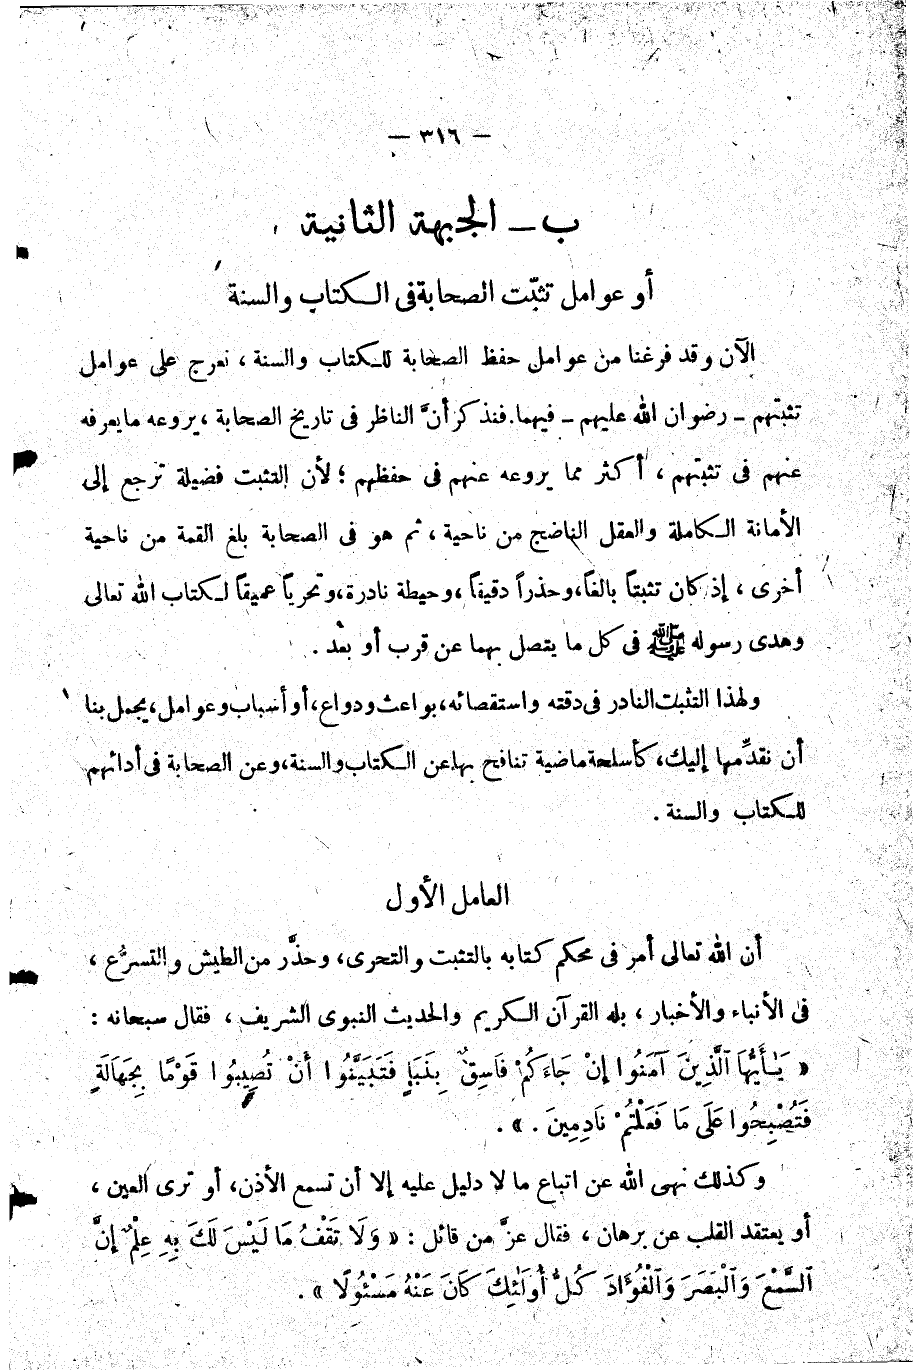 — ٣١٦ —
ب — الجبهة الثانية
أو عوامل تثبّت الصحابة فى الكتاب والسنة
الآن وقد فرغنا من عوامل حفظ الصحابة للكتاب والسنة ، نعرج على عوامل
تثبتهم – رضوان الله عليهم – فيهما. فنذكر أنَّ الناظر فى تاريخ الصحابة ، يروعه ما يعرفه
عنهم فى تثبتهم ، أكثر مما يروعه عنهم فى حفظهم ؛ لأن التثبت فضيلة ترجع إلى
الأمانة الكاملة والعقل الناضج من ناحية ، ثم هو فى الصحابة بلغ القمة من ناحية
أخرى ، إذ كان تثبتاً بالغاً، وحذراً دقيقاً ، وحيطة نادرة، وتحرياً عميقاً لكتاب الله تعالى
وهدى رسوله ﷺ فى كل ما يتصل بهما عن قرب أو بعد .
ولهذا التثبت النادر فى دقته واستقصائه، بواعث ودواع، أو أسباب وعوامل، يجمل بنا
أن نقدِّمها إليك، كأسلحة ماضية تنافح بها عن الكتاب والسنة، وعن الصحابة فى أدائهم
للكتاب والسنة .
العامل الأول
أن الله تعالى أمر فى محكم كتابه بالتثبت والتحرى، وحذَّر من الطيش والتسرُّع ،
فى الأنباء والأخبار ، بله القرآن الكريم والحديث النبوى الشريف ، فقال سبحانه :
« يَـٰأَيُّهَا ٱلَّذِينَ آمَنُوا إِنْ جَاءَكُمْ فَاسِقٌ بِنَبَإٍ فَتَبَيَّنُوا أَنْ تُصِيبُوا قَوْمًا بِجَهَالَةٍ
فَتُصْبِحُوا عَلَى مَا فَعَلْتُمْ نَادِمِينَ . » .
وكذلك نهى الله عن اتباع ما لا دليل عليه إلا أن تسمع الأذن، أو ترى العين ،
أو يعتقد القلب عن برهان ، فقال عزَّ من قائل : « وَلَا تَقْفُ مَا لَيْسَ لَكَ بِهِ عِلْمٌ إِنَّ
ٱلسَّمْعَ وَٱلْبَصَرَ وَٱلْفُؤَادَ كُلُّ أُولَـٰئِكَ كَانَ عَنْهُ مَسْئُولًا » .